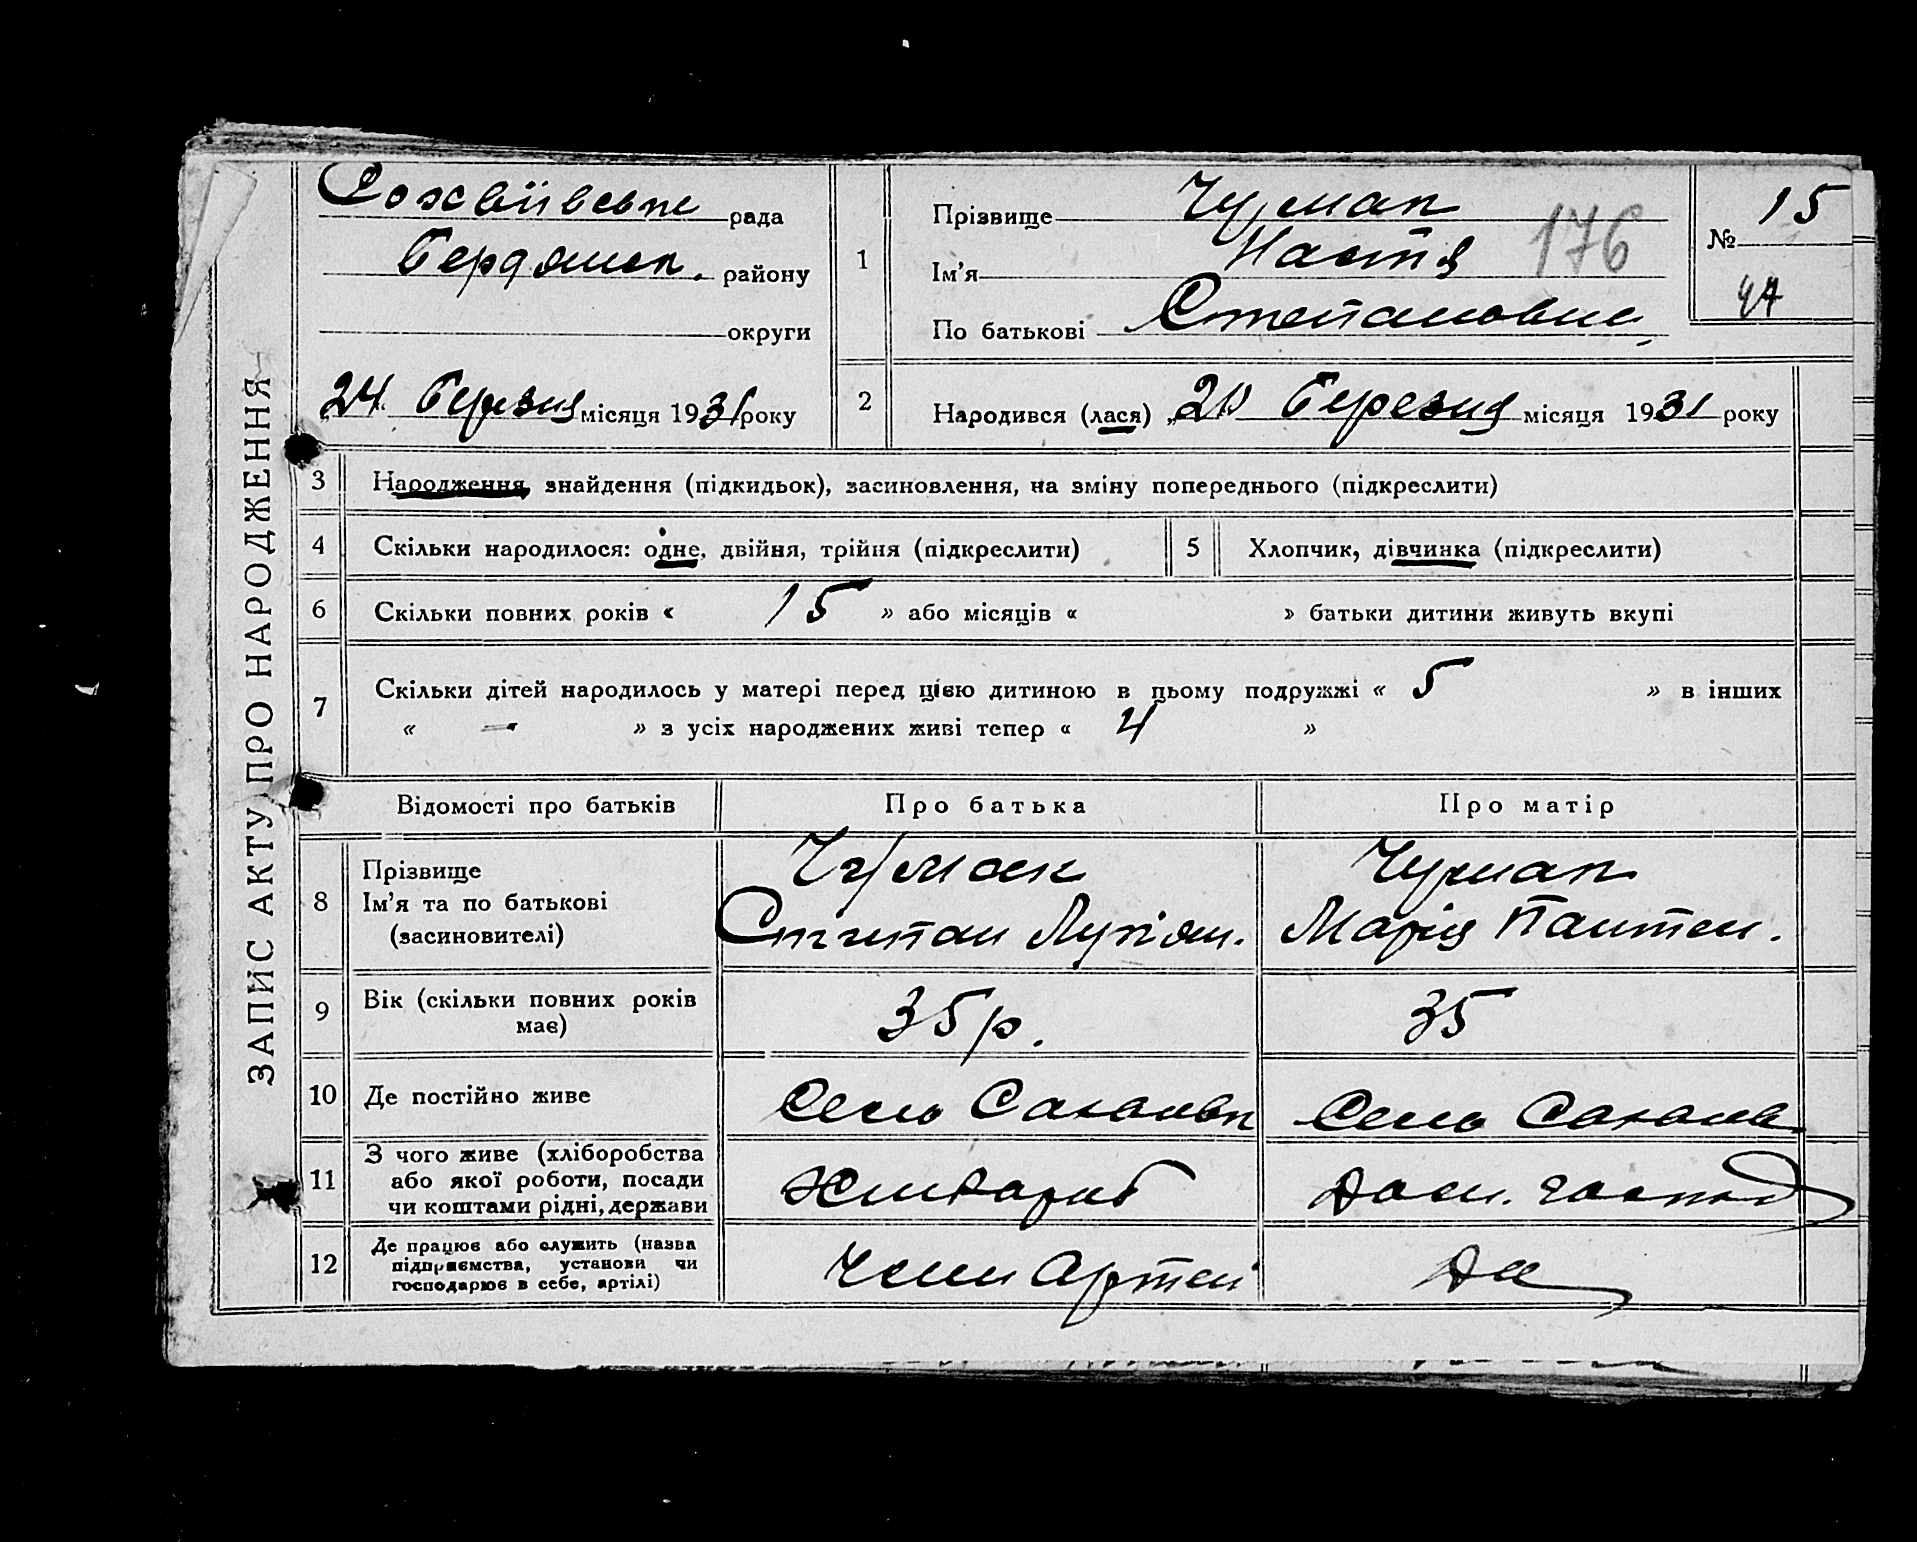 ЗАПИС АКТУ ПРО НАРОДЖЕННЯ
рада
Бердянськ. району
округи
24 Березня місяця 1931 року
1
Прізвище Чумак
Ім'я Настя
По батькові Степановна
176
№ 15
2
Народився (лася) „20 Березня місяця 1931 року
3 Народження, знайдення (підкидьок), засиновлення, на зміну попереднього (підкреслити)
4 Скільки народилося: одне, двійня, трійня (підкреслити) 5 Хлопчик, дівчинка (підкреслити)
6 Скільки повних років « 15 » або місяців « » батьки дитини живуть вкупі
7 Скільки дітей народилось у матері перед цією дитиною в цьому подружжі « 5 » в інших
« — » з усіх народжених живі тепер « 4 »
Відомості про батьків Про батька Про матір
8 Прізвище Чумак Чумак
Ім'я та по батькові
(засиновителі) Степан Лук'ян. Марія Пантел.
9 Вік (скільки повних років має) 35 р. 35
10 Де постійно живе Село Село
11 З чого живе (хліборобства
або якої роботи, посади
чи коштами рідні, держави Хлібороб Дом. господ
12 Де працює або служить (назва
підприємства, установи чи
господарює в себе, артілі) Член Артелі